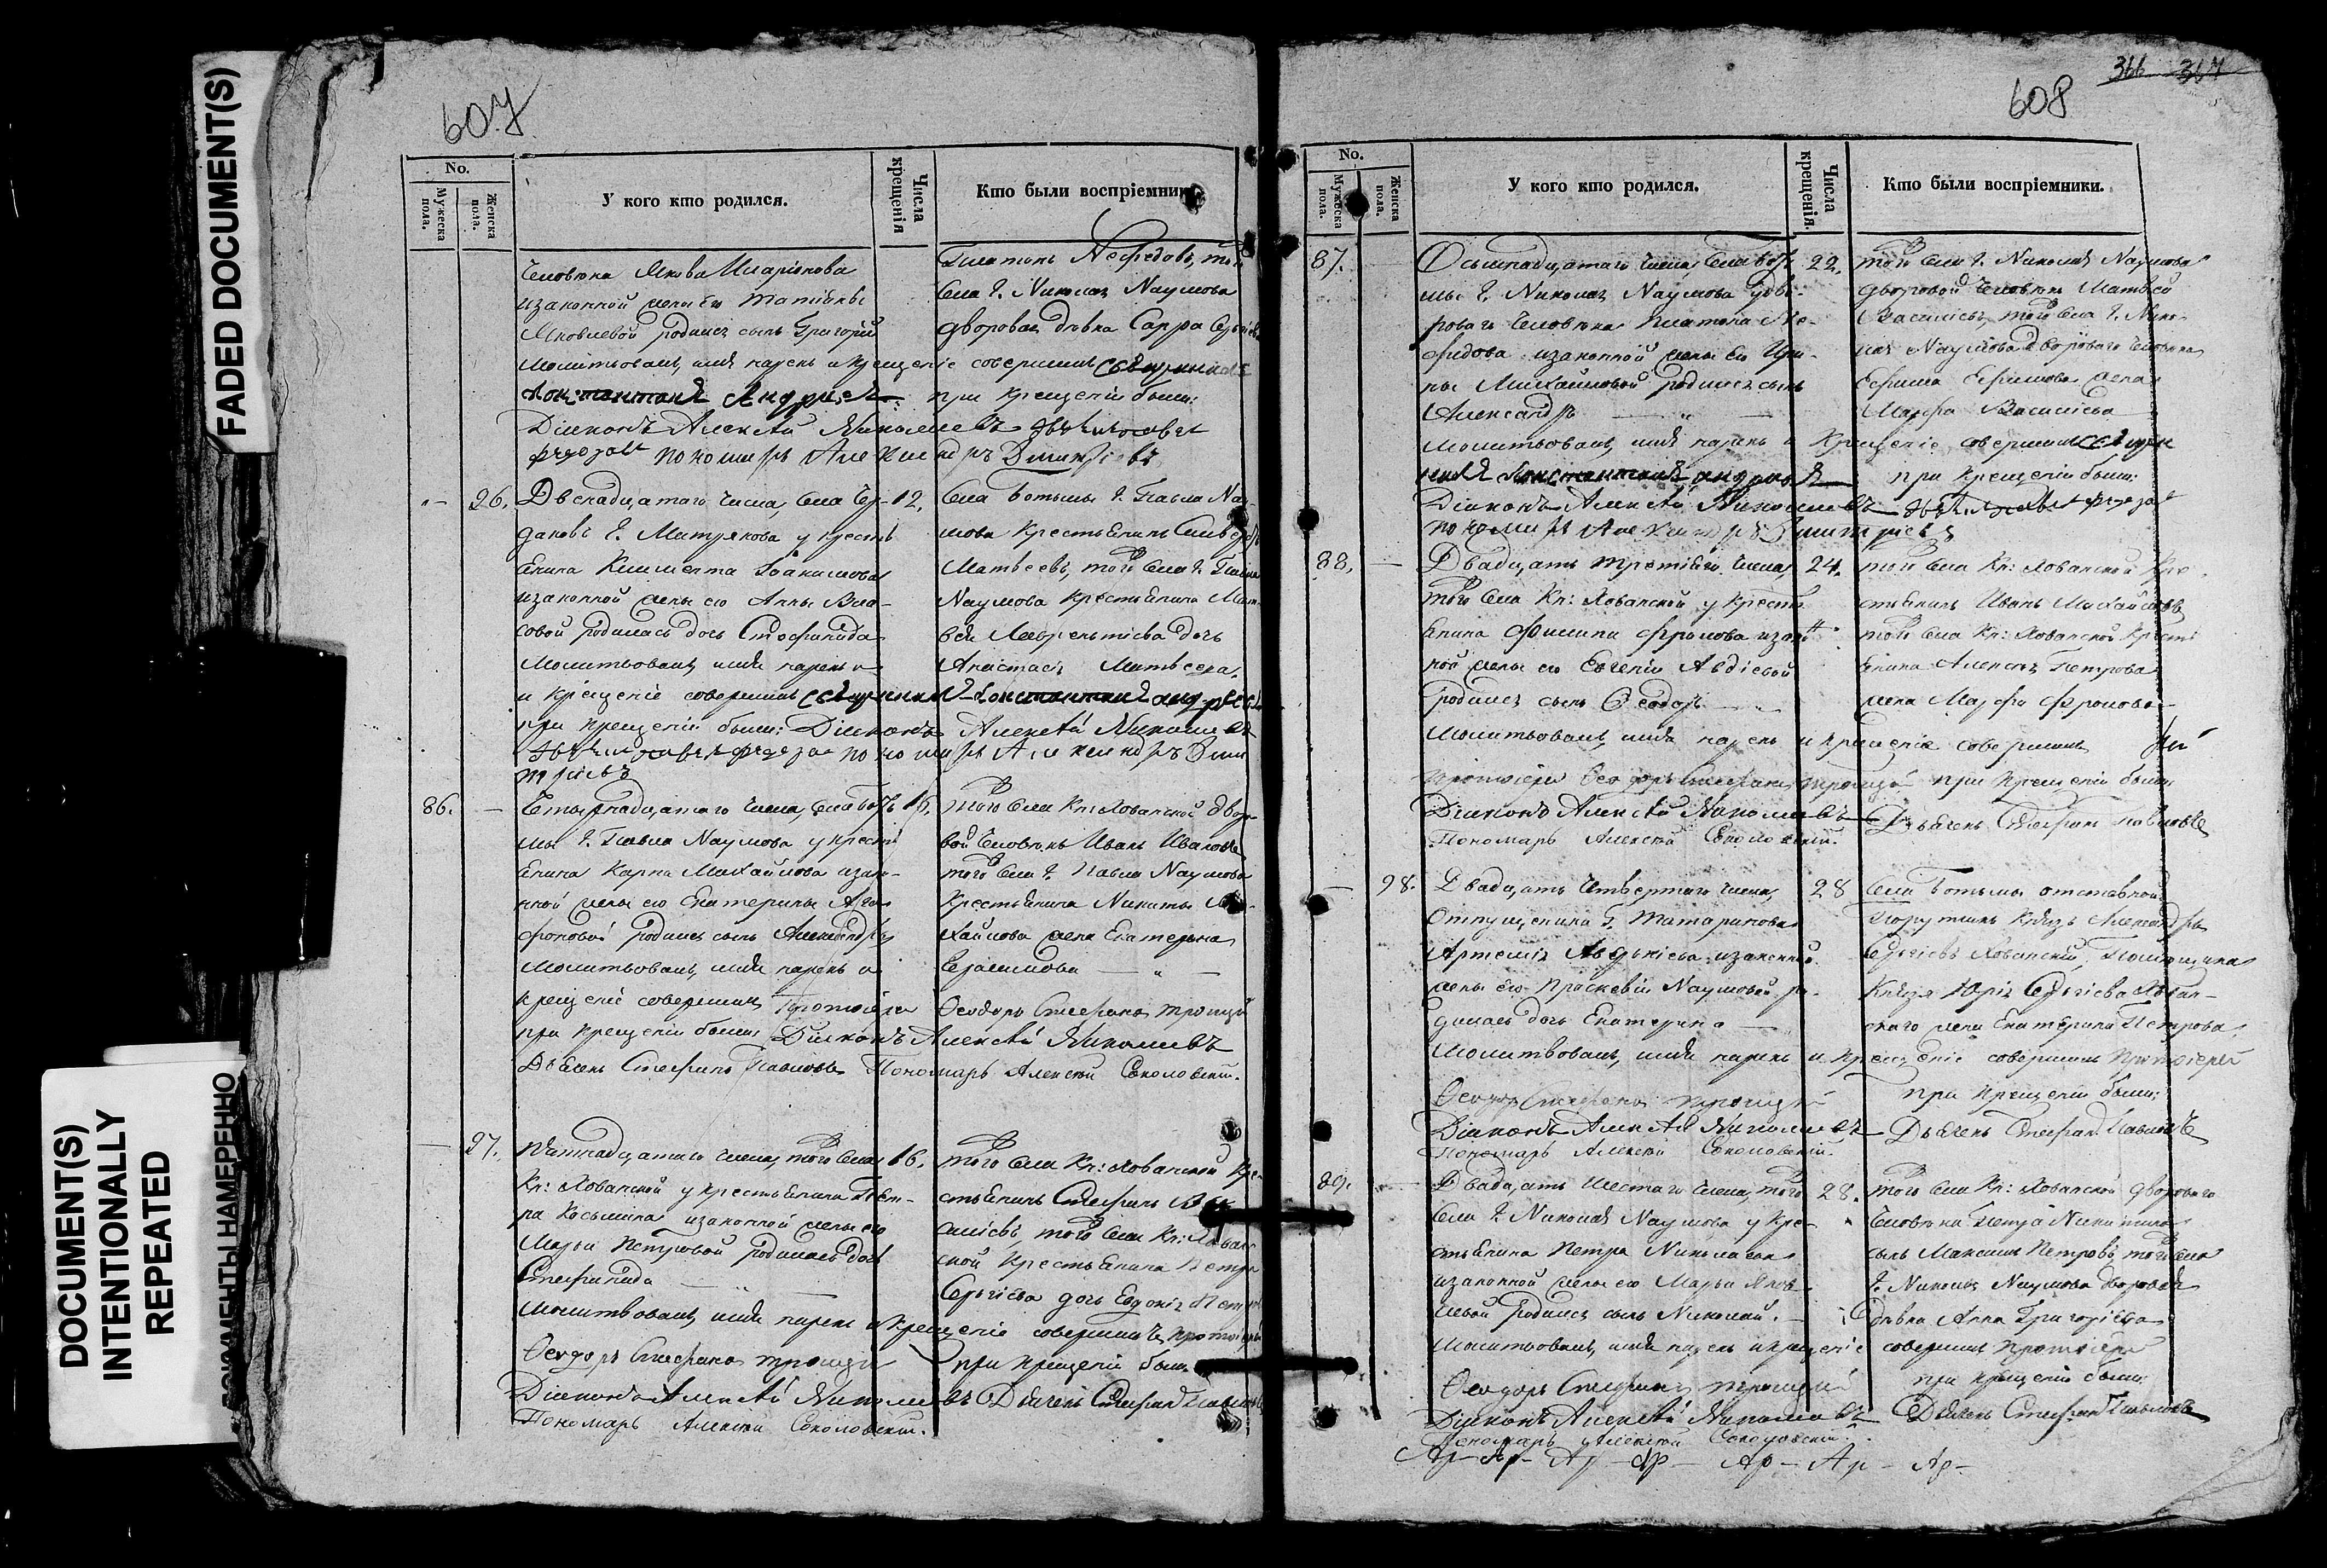 FADED DOCUMENT(S)
DOCUMENT(S)
INTENTIONALLY
REPEATED
ДОКУМЕНТЫ НАМЕРЕННО
607
No.
Мужеска пола.
Женска пола.
У кого кто родился.
Числа крещенія
Кто были воспріемник
человѣка Якова Иларіонова
изаконной жены его татіяны
Яковлевой родился сынъ Григорій
молитвовалъ, имя нарекъ и крещеніе совершилъ священникъ
Константинъ Андреевъ при крещеніи были:
Діаконъ Алексѣй Николаевъ
пономарь Александръ Дмитріевъ
Платонъ Нефедовъ, той
села Г. Николая Наумова
дворовая дѣвка Сарра
26. Двенадцатаго числа, села Чер- 12.
даковъ Г. Митрякова у кресть
янина Климента Іоакимова
изаконной жены его Анны Вла-
совой родилась дочь Стефанида
молитвовалъ имя нарекъ и
и крещеніе совершилъ священникъ Константинъ Андреевъ
при крещеніи были: Діаконъ Алексѣй Николаевъ
пономарь Александръ Дми
тріевъ
села Ботьмы Г. Павла На-
умова крестьянинъ
Матвеевъ, того села Г. Павла
Наумова крестьянина Мат-
вея Лаврентіева дочь
Анастасія Матвеева,
86. — Четырнадцатаго числа, села Боть 16.
мы Г. Павла Наумова у кресть
янина Карпа Михайлова изако-
нной жены его Екатерины Ага-
фоновой родился сынъ Александръ
молитвовалъ, имя нарекъ и
крещеніе совершилъ Протоіерей Ѳеодоръ Стефановъ Троицкій
при крещеніи были: Діаконъ Алексѣй Николаевъ
Дьячекъ Стефанъ Павловъ Пономарь Алексѣй Соколовскій.
того села Кн: Хованской дворо-
вой человѣкъ Иванъ Ивановъ
того села Г. Павла Наумова
крестьянина Никиты Ми-
хайлова жена Екатерина
Герасимова — " —
— 27. Пятнадцатаго числа, того села 16.
Кн: Хованской у крестьянина Пет-
ра Косьмина изаконной жены его
Марьи Петровой родилась дочь
Стефанида — " —
молитвовалъ, имя нарекъ и крещеніе совершилъ Протоіерей
Ѳеодоръ Стефановъ Троицкій при крещеніи были:
Діаконъ Алексѣй Николаевъ Дьячекъ Стефанъ Павловъ
Пономарь Алексѣй Соколовскій.
того села Кн: Хованской кре-
стьянинъ Стефанъ Ва
силіевъ, того села Кн: Хован
ской крестьянина Петра
Сергіева дочь Евдокія
366 367
608
No.
Мужеска пола.
Женска пола.
У кого кто родился.
Числа крещенія.
Кто были воспріемники.
87. Осьмнадцатаго числа, села Боть 22.
мы Г. Николая Наумова у дво-
роваго человѣка Платона Не-
федова изаконной жены его Ири-
ны Михайловой родился сынъ
Александръ — " —
молитвовалъ, имя нарекъ и крещеніе совершилъ священ
никъ Константинъ Андреевъ при крещеніи были:
Діаконъ Алексѣй Николаевъ
пономарь Александръ Дмитріевъ
того села Г. Николая Наумова
дворовой человѣкъ Матвей
Василіевъ, того села Г. Нико-
лая Наумова двороваго человѣка
Ефима Ефимова жена
Марфа Василіева
88. — Двадцать третіяго числа, 24.
того села Кн: Хованской у кресть
янина Филипа Фролова изако
ной жены его Евгеніи Авдіевой
родился сынъ Ѳеодоръ — " —
молитвовалъ, имя нарекъ и крещеніе совершилъ
Протоіерей Ѳеодоръ Стефановъ Троицкій при крещеніи были:
Діаконъ Алексѣй Николаевъ Дьячекъ Стефанъ Павловъ
Пономарь Алексѣй Соколовскій.
того села Кн: Хованской кре
стьянинъ Иванъ Михайловъ
того села Кн: Хованской кресть
янина Алексея Петрова
жена Марфа Фролова
— 28. Двадцать четвертаго числа, 28
Отпущенника Г. Татаринова
Артемія Аверкіева изаконной
жены его Прасковіи Наумовой ро-
дилась дочь Екатерина —
молитвовалъ, имя нарекъ и крещеніе совершилъ Протоіерей
Ѳеодоръ Стефановъ Троицкій при крещеніи были:
Діаконъ Алексѣй Николаевъ Дьячекъ Стефанъ Павловъ
Пономарь Алексѣй Соколовскій.
села Ботьмы отставной
Порутчикъ Князь Александръ
Сергіевъ Хованскій, Помощика
Князя Юрія Сергіева Хован-
скаго жена Екатерина Петрова,
89. Двадцать шестаго числа, того 28.
села Г. Николая Наумова у кре-
стьянина Петра Николаева
изаконной жены его Марьи Яков-
левой родился сынъ Николай. —
молитвовалъ, имя нарекъ и крещеніе совершилъ Протоіерей
Ѳеодоръ Стефановъ Троицкій при крещеніи были:
Діаконъ Алексѣй Николаевъ Дьячекъ Стефанъ Павловъ
Пономарь Алексѣй Соколовскій.
того села Кн: Хованской двороваго
человѣка Петра Никитина
сынъ Максимъ Петровъ, того села
Г. Николая Наумова дворовая
дѣвка Анна Григоріева
Ар- Ар- Ар- Ар- Ар- Ар- Ар-